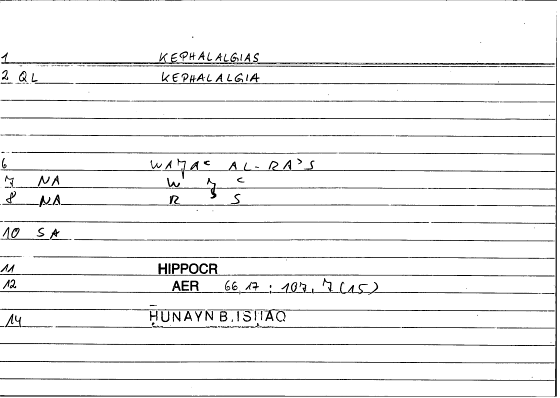 1 KEPHALALGIAS
2 QL KEPHALALGIA
6 WAǦAʿ AL-RAʾS
7 NA W Ǧ ʿ
8 NA R ʾ S
10 SA
11 HIPPOCR
12 AER 66,17 : 107, 7 (15)
14 ḤUNAYN B. ISḤAQ